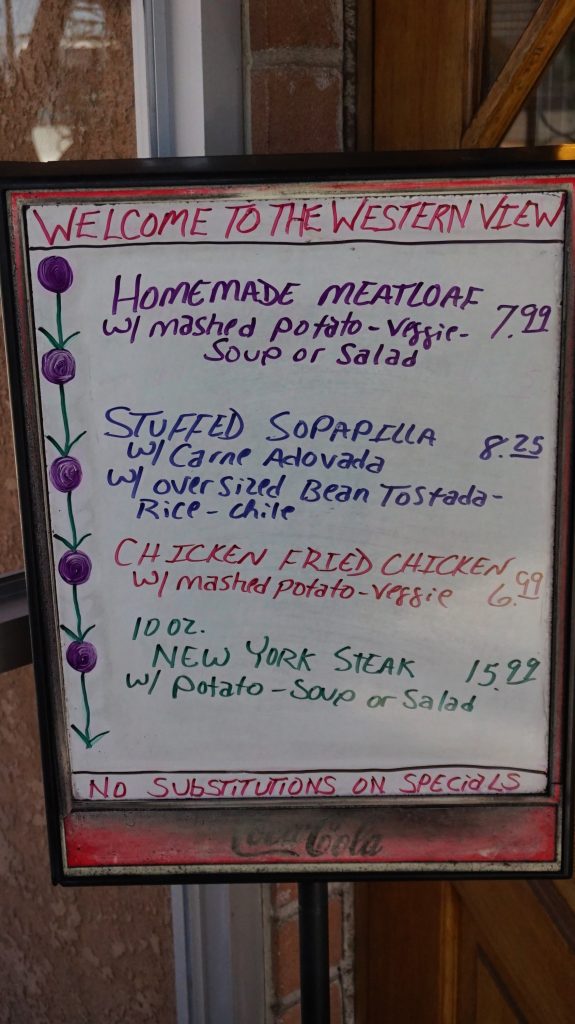 WELCOME TO THE WESTERN VIEW
HOMEMADE MEATLOAF 7.99
w/ mashed potato - veggie -
Soup or Salad
STUFFED SOPAPILLA 8.25
w/ Carne Adovada
w/ oversized Bean Tostada -
Rice - chile
CHICKEN FRIED CHICKEN
w/ mashed potato - veggie 6.99
10 oz.
NEW YORK STEAK 15.99
w/ potato - Soup or Salad
NO SUBSTITUTIONS ON SPECIALS
Coca-Cola